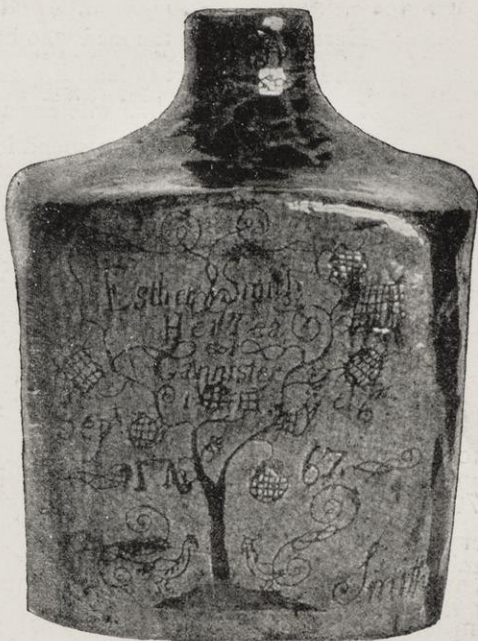 Esther Smith
Her Tea
Cannister
Sepᵗ
17 67.
Smith